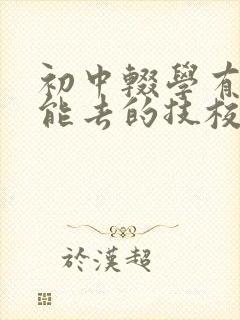 初中輟學有
能去的技校
於漢超